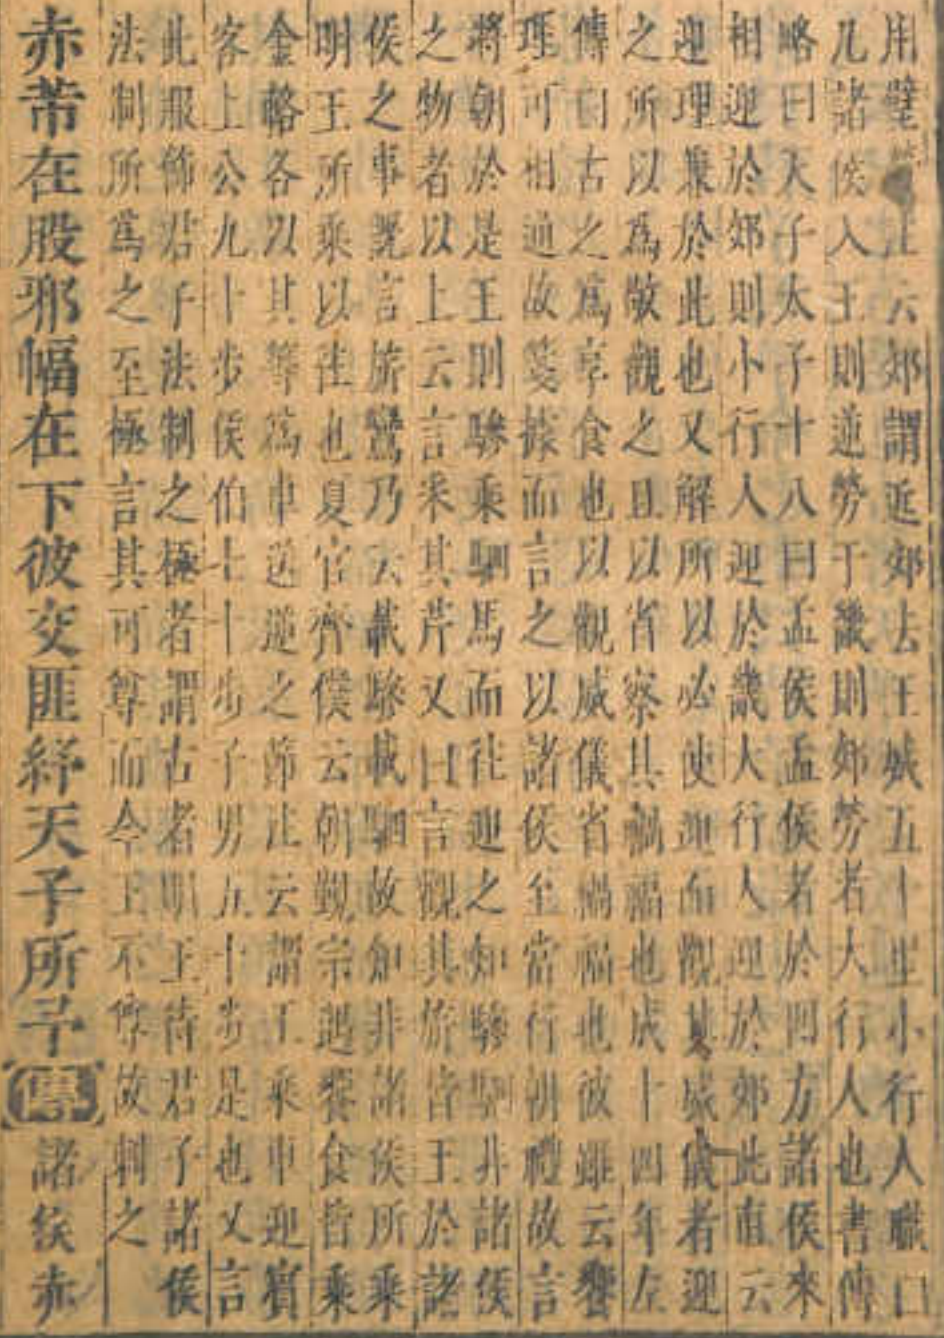 用璧注云郊謂近郊去王城五十里小行人職曰
凡諸侯入王則逆勞于畿則郊勞者大行人也書傳
略曰天子太子十八曰孟侯孟侯者於四方諸侯來
相迎於郊則小行人迎於畿大行人迎於郊此直云
迎理兼於此也又解所以必使迎而觀其威儀者迎
之所以為敬觀之且以省察其禍福也成十四年左
傳曰古之為享食也以觀威儀省禍福也彼雖云饗
理可相通故箋據而言之以諸侯至當行朝禮故言
將朝於是王則驂乘駟馬而往迎之知驂駟非諸侯
之物者以上云言釆其芹又曰言觀其旂皆王於諸
侯之事既言旂鸞乃云載驂載駟故知非諸侯所乘
明王所乘以往也夏官齊僕云朝觐宗遇饗食皆乘
金輅各以其等為車送逆之節注云謂王乘車迎賓
客上公九十步侯伯七十步子男五十步是也又言
此服飾君子法制之極者謂古者明王待君子諸侯
法制所為之至極言其可尊而今王不尊故刺之
赤芾在股邪幅在下彼交匪紓天子所予傳諸侯赤